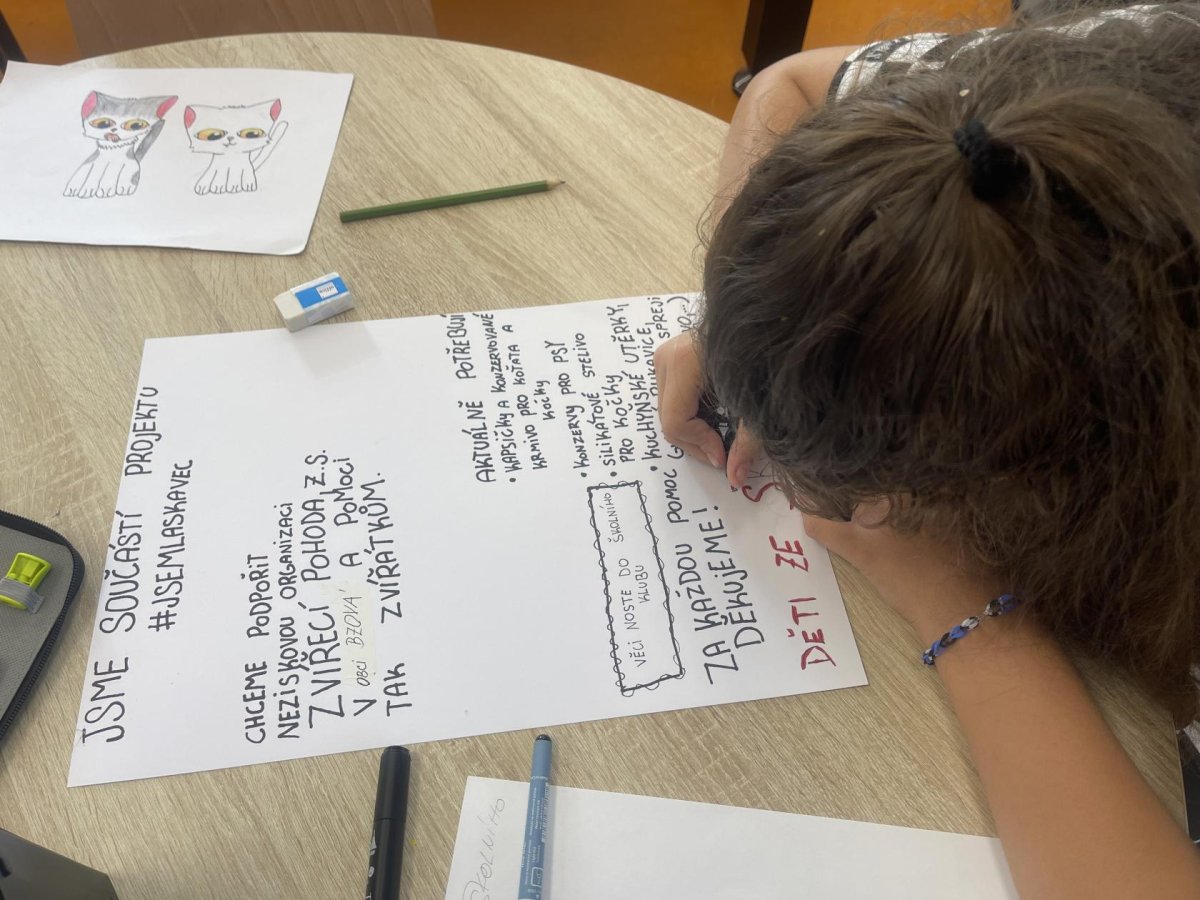 JSME SOUČÁSTÍ PROJEKTU
#JSEMLASKAVEC
CHCEME PODPOŘIT
NEZISKOVOU ORGANIZACI
ZVÍŘECÍ POHODA, Z.S.
V OBCI BZOVÁ A POMOCI
TAK ZVÍŘÁTKŮM.
AKTUÁLNĚ POTŘEBUJÍ
• KAPSIČKY A KONZERVOVANÉ
KRMIVO PRO KOŤATA A
KOČKY
• KONZERVY PRO PSY
• SILIKÁTOVÉ STELIVO
PRO KOČKY
• KUCHYŇSKÉ UTĚRKY,
RUKAVICE,
SPREJI
VĚCI NOSTE DO ŠKOLNÍHO
KLUBU
ZA KAŽDOU POMOC
DĚKUJEME!
DĚTI ZE
ŠKOLNÍHO